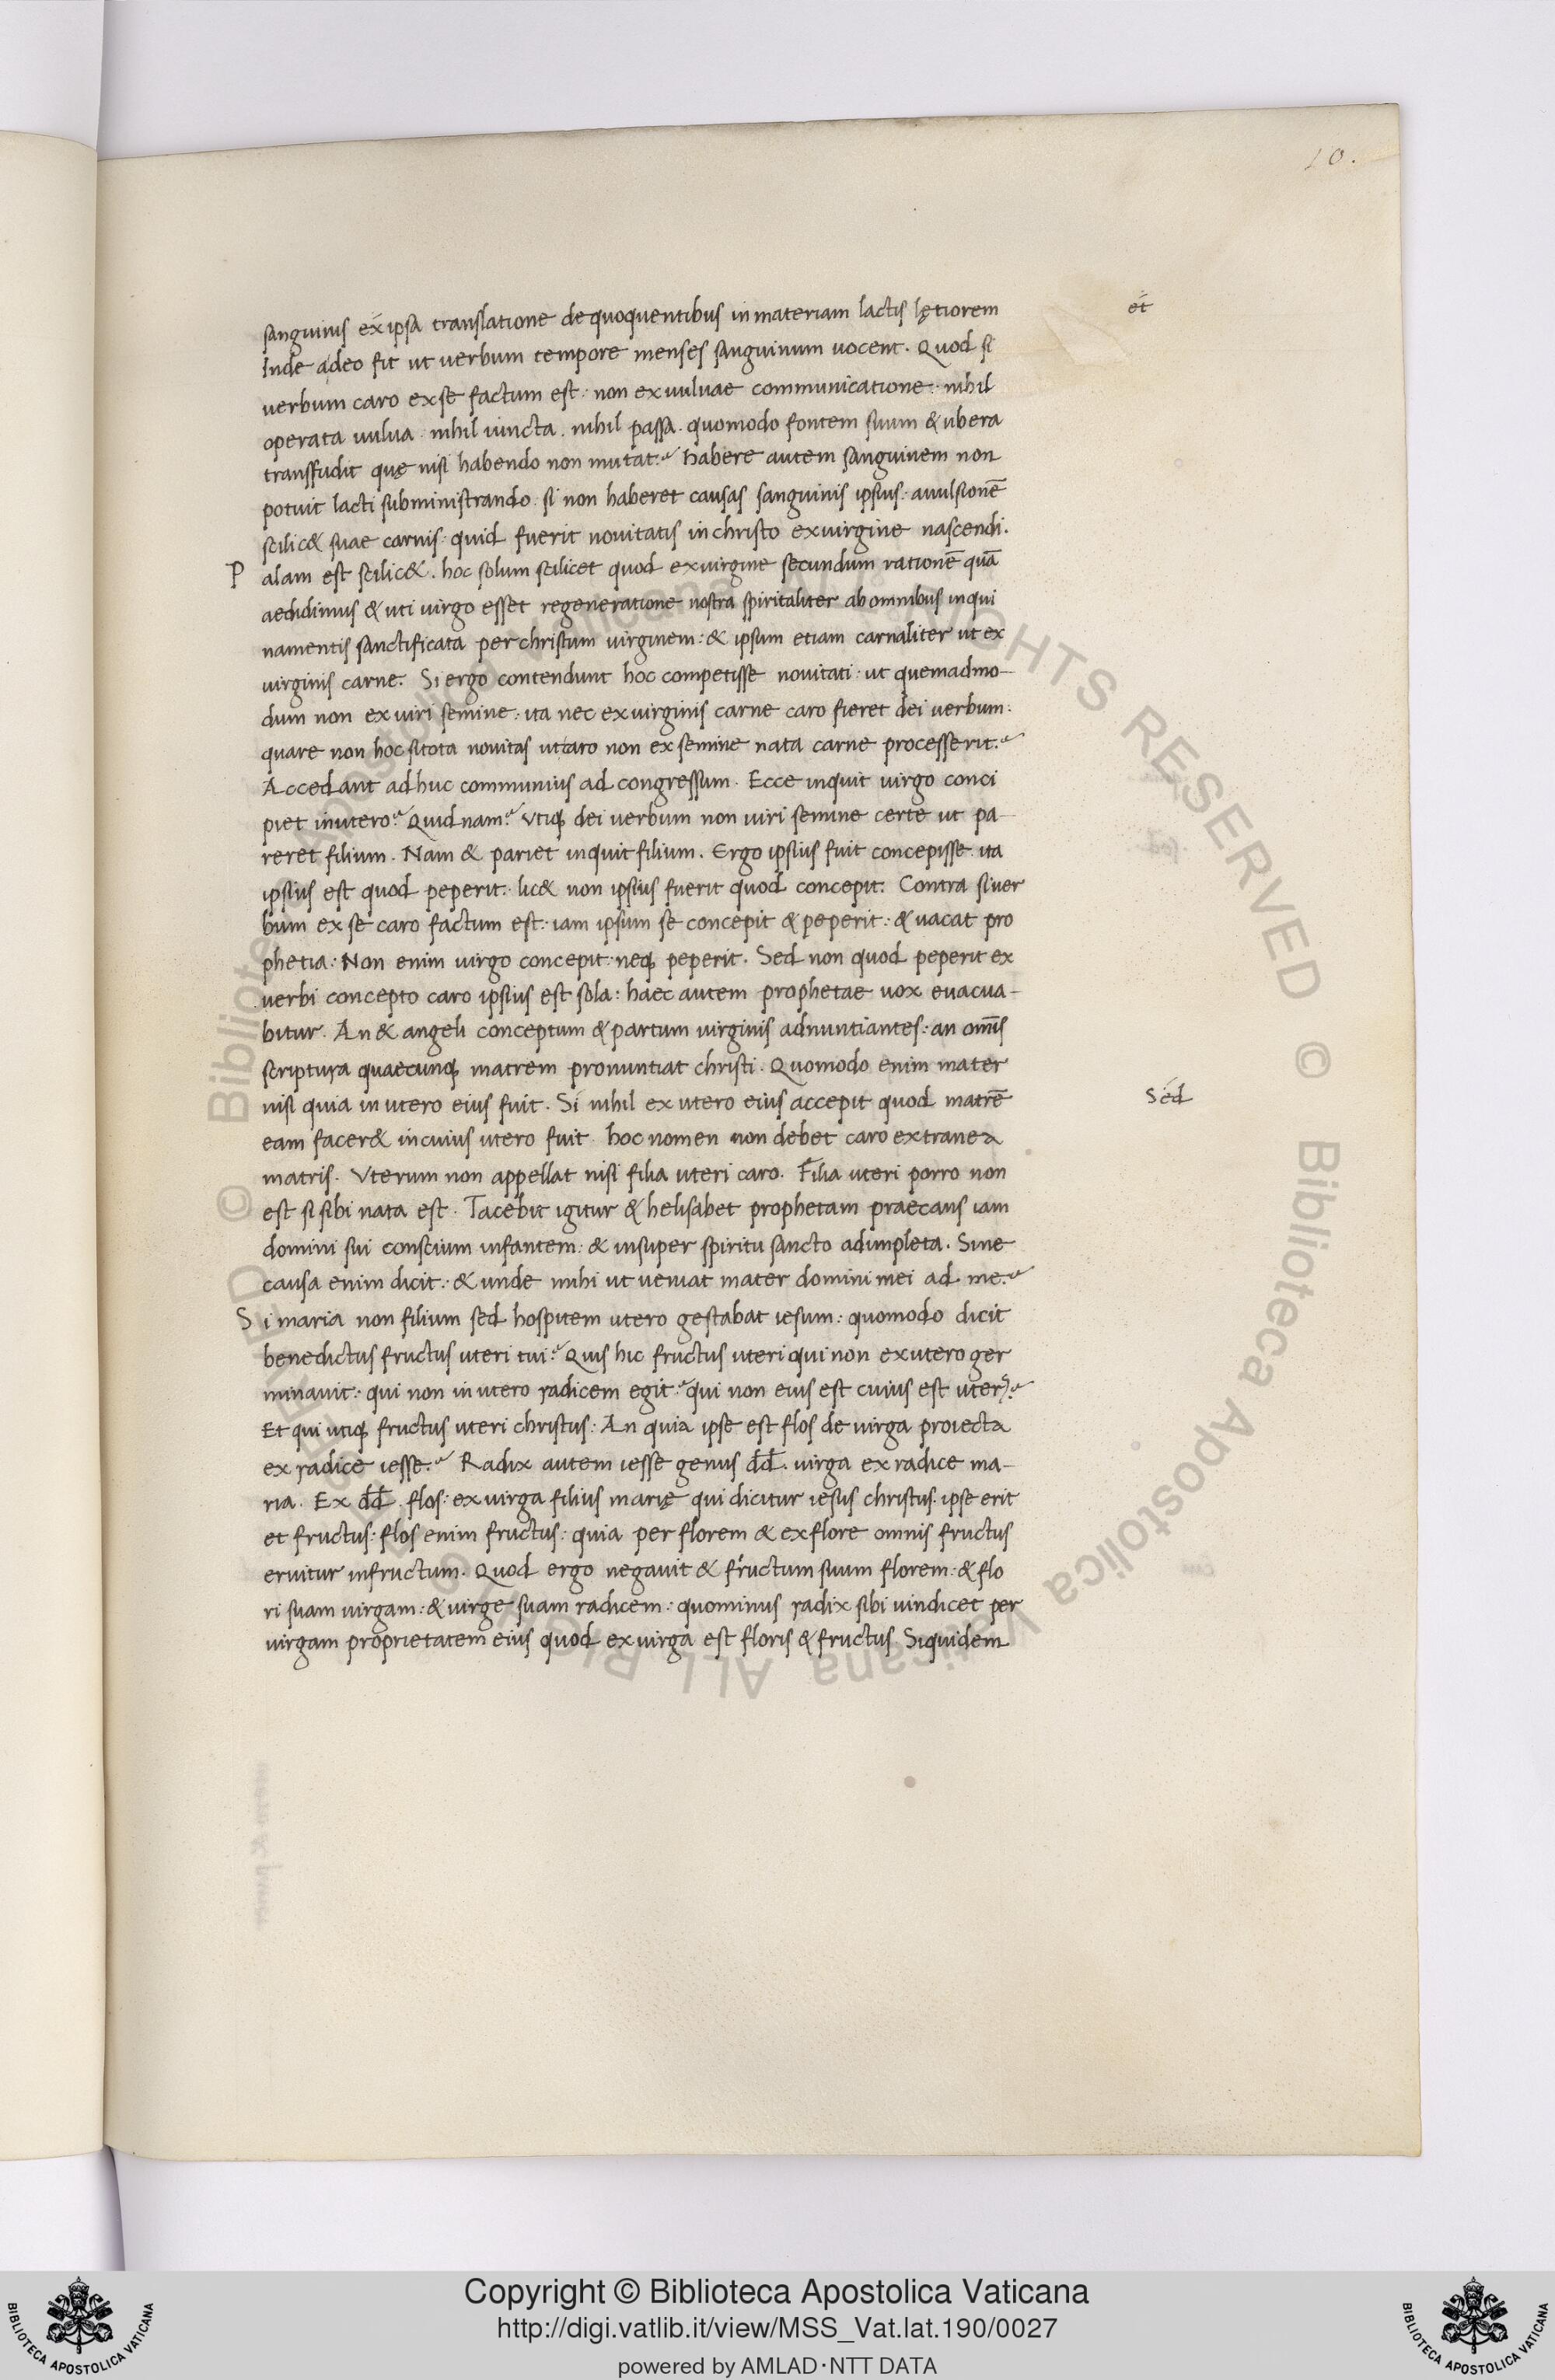 10.
et
sanguinis ex ipsa translatione dequoquentibus in materiam lactis lętiorem
Inde adeo fit ut verbum tempore menses sanguinum uocent. Quod si
uerbum caro ex se factum est: non ex vuluae communicatione: nihil
operata uulua: nihil iuncta. nihil passa. quomodo fontem suum & ubera
transfudit quę nisi habendo non mutat? habere autem sanguinem non
potuit lacti subministrando. si non haberet causas sanguinis ipsius: auulsionē
scilic& suae carnis: quid fuerit nouitatis in christo ex uirgine nascendi.
P alam est scilic&. hoc solum scilicet quod ex uirgine secundum rationē quā
aedidimus & uti uirgo esset regeneratione nostra spiritaliter ab omnibus inqui
namentis sanctificata per christum uirginem: & ipsum etiam carnaliter ut ex
uirginis carne. Si ergo contendunt hoc competisse nouitati: ut quemadmo-
dum non ex uiri semine: ita nec ex uirginis carne caro fieret dei uerbum:
quare non hoc sit tota nouitas ut caro non ex semine nata carne processerit?
Accedant adhuc communius ad congressum. Ecce inquit uirgo conci
piet in utero? Quid nam? Utiq; dei uerbum non uiri semine certe ut pa-
reret filium. Nam & pariet inquit filium. Ergo ipsius fuit concepisse: ita
ipsius est quod peperit: lic& non ipsius fuerit quod concepit: Contra si uer
bum ex se caro factum est: iam ipsum se concepit & peperit: & uacat pro
phetia: Non enim uirgo concepit: neq; peperit. Sed non quod peperit ex
uerbi concepto caro ipsius est sola: haec autem prophetae uox euacua-
bitur. An & angeli conceptum & partum uirginis adnuntiantes: an omīs
scriptura quaecunq; matrem pronuntiat christi. Quomodo enim mater
nisi quia in utero eius fuit. Si nihil ex utero eius accepit quod matrē
Sed
eam facer& in cuius utero fuit hoc nomen non debet caro extranea
matris. Vterum non appellat nisi filia uteri caro. Filia uteri porro non
est si sibi nata est. Tacebit igitur & helisabet prophetam praecans iam
domini sui conscium infantem: & insuper spiritu sancto adimpleta. Sine
causa enim dicit: & unde mihi ut ueniat mater domini mei ad me?
S i maria non filium sed hospitem utero gestabat iesum: quomodo dicit
benedictus fructus uteri tui? Quis hic fructus uteri qui non ex utero ger
minauit: qui non in utero radicem egit? qui non eius est cuius est uter?
Et qui utiq; fructus uteri christus: An quia ipse est flos de uirga proiecta
ex radice iesse? Radix autem iesse genus dd. uirga ex radice ma-
ria. Ex dd. flos: ex uirga filius marię qui dicitur iesus christus: ipse erit
et fructus: flos enim fructus: quia per florem & ex flore omnis fructus
eruitur in fructum. Quod ergo negauit & fructum suum florem: & flo
ri suam uirgam: & uirge suam radicem: quominus radix sibi uindicet per
uirgam proprietatem eius quod ex uirga est floris & fructus Siquidem
Copyright © Biblioteca Apostolica Vaticana
http://digi.vatlib.it/view/MSS_Vat.lat.190/0027
powered by AMLAD·NTT DATA